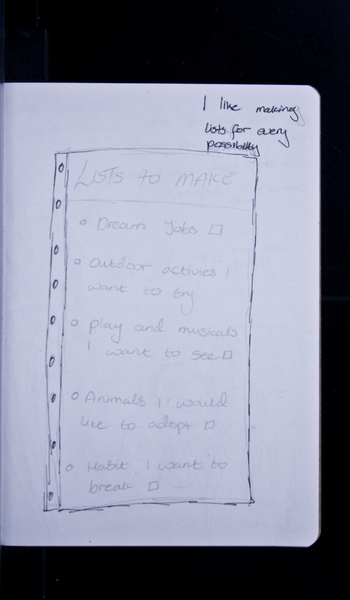 I like making
lists for every
possibility
LISTS to MAKE
Dream Jobs
Outdoor activies I
want to try
Play and musicals
I want to see
Animals I would
like to adopt
Habit I want to
break